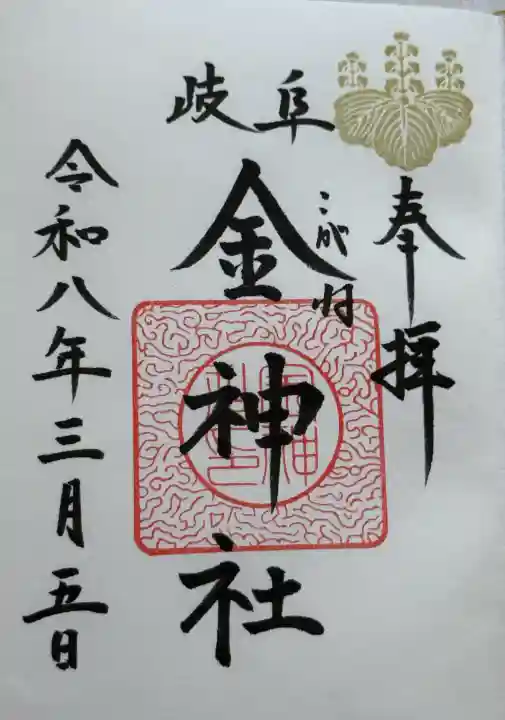 奉拝
こがね
岐阜
金神社
令和八年三月五日